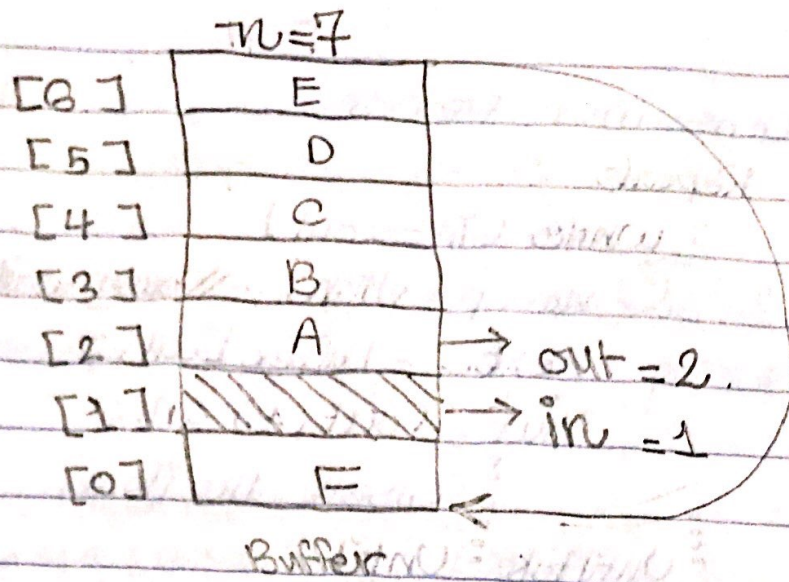 n=7
[6] E
[5] D
[4] C
[3] B
[2] A → out = 2.
[1] → in = 1
[0] F
Buffer